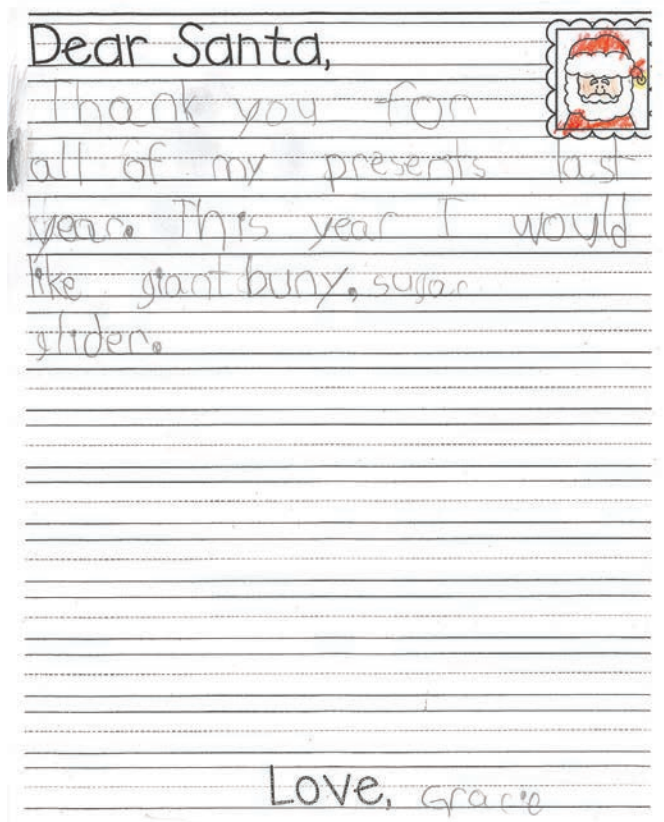 Dear Santa,
Thank you for
all of my presents last
year. This year I would
like giant buny, sugar
glider.
Love, Gracie